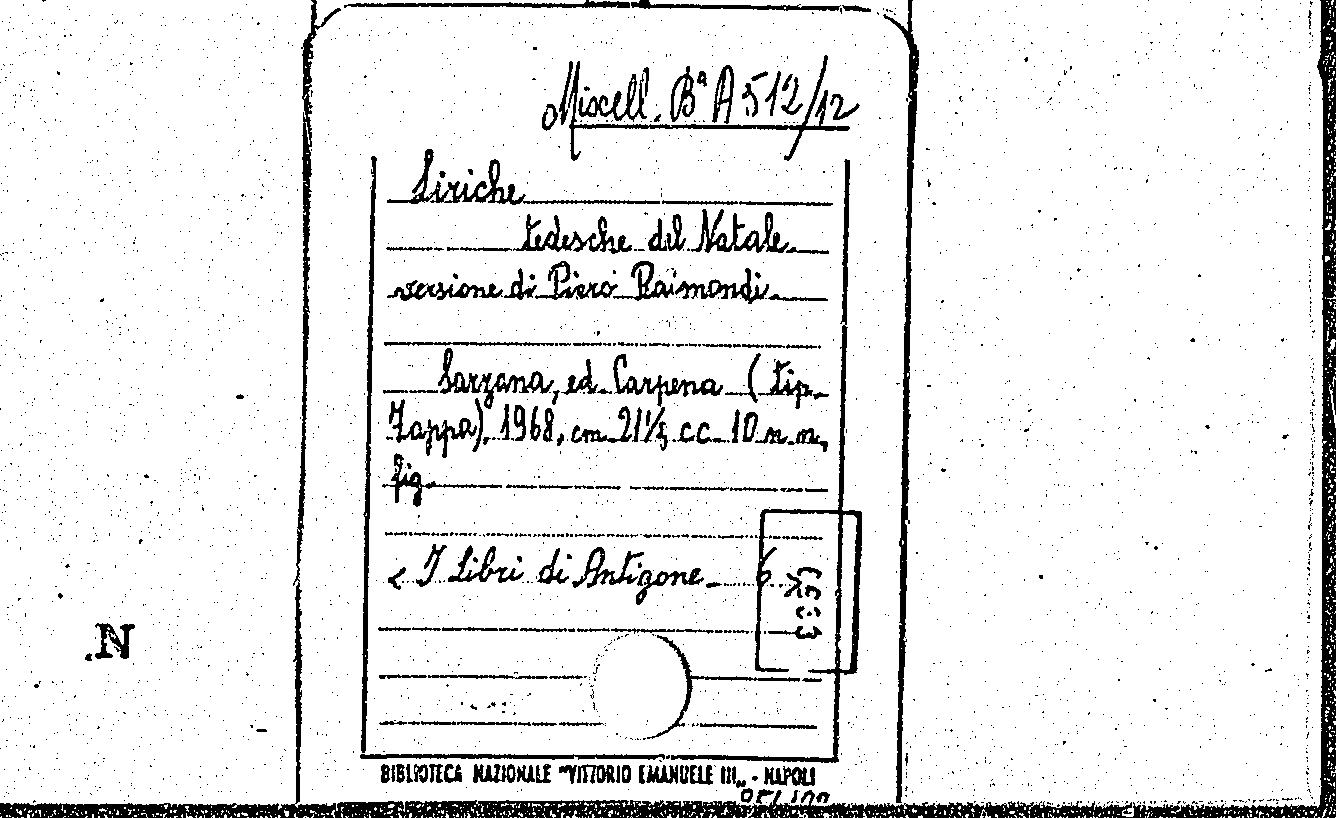 Miscell. Bª A 512/12
Liriche
tedesche del Natale
versione di Piero Raimondi.
Sarzana, ed. Carpena (tip.
Zappa), 1968, cm. 21½ cc. 10 n.n.,
fig.
< I Libri di Antigone _ 6 >
.N
BIBLIOTECA NAZIONALE "VITTORIO EMANUELE III„ - NAPOLI